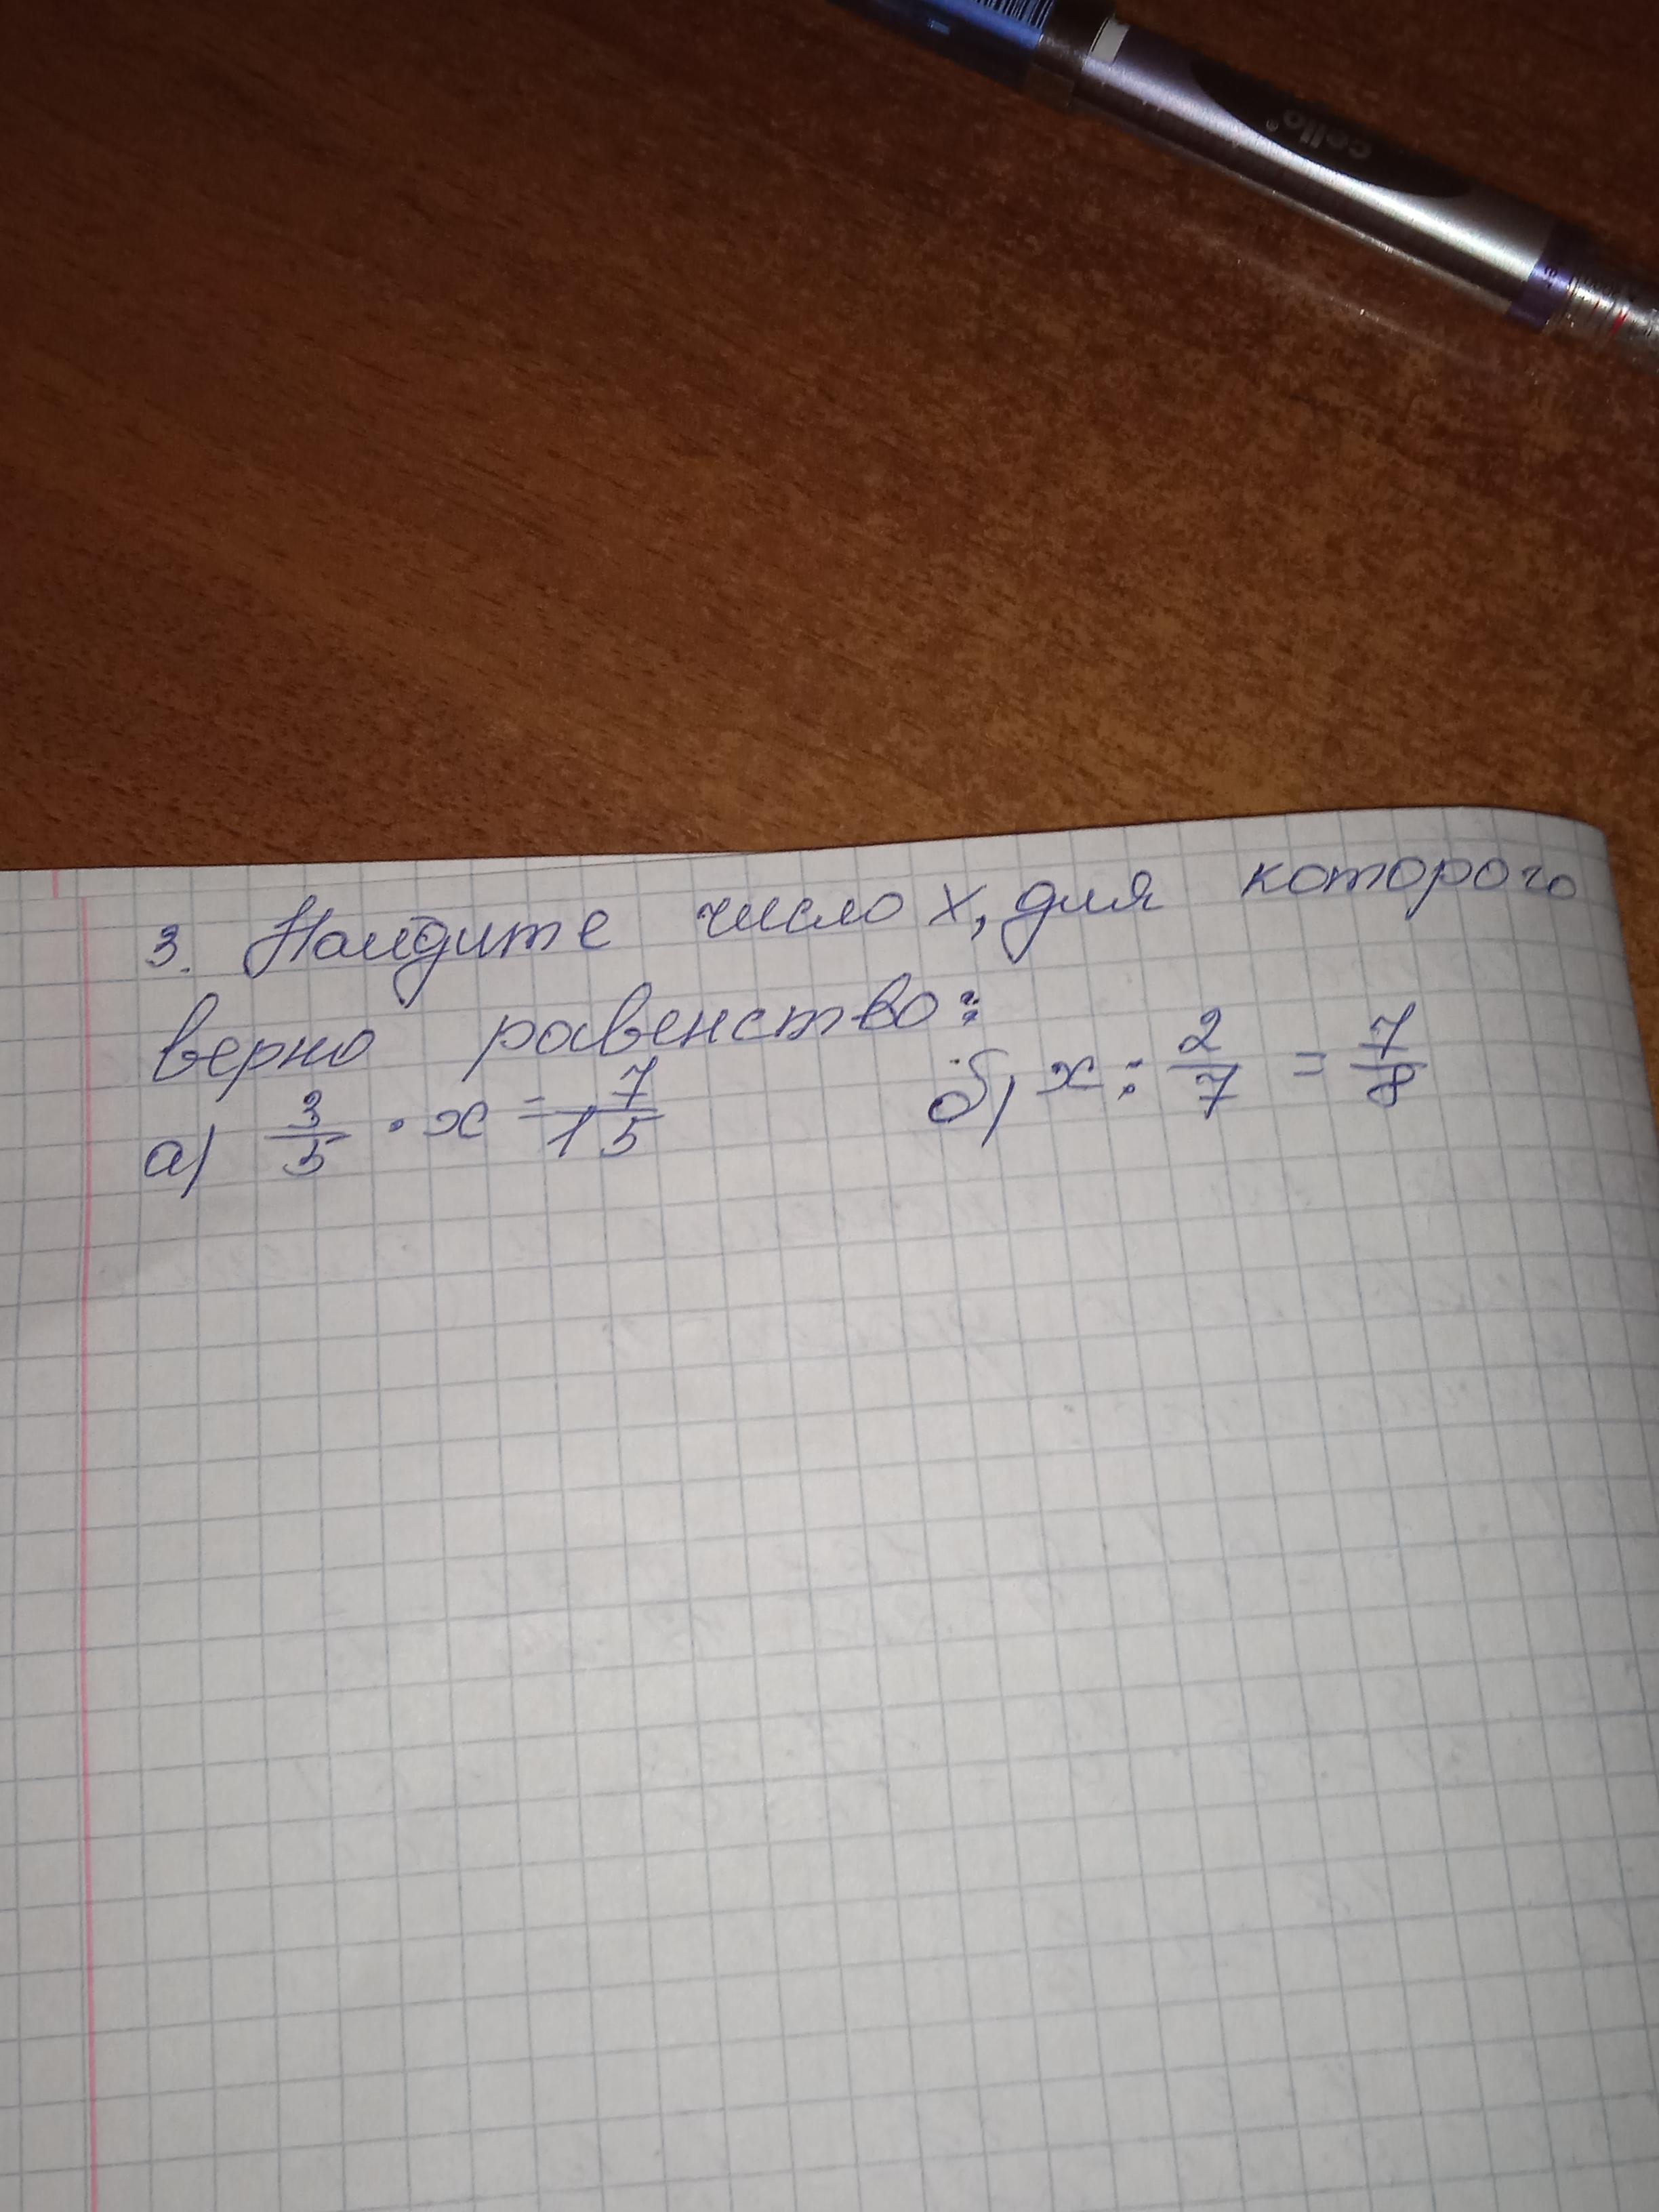 cello
3. Найдите число x, для которого
верно равенство:
а) 3/5 · x = 7/15 б) x : 2/7 = 7/8